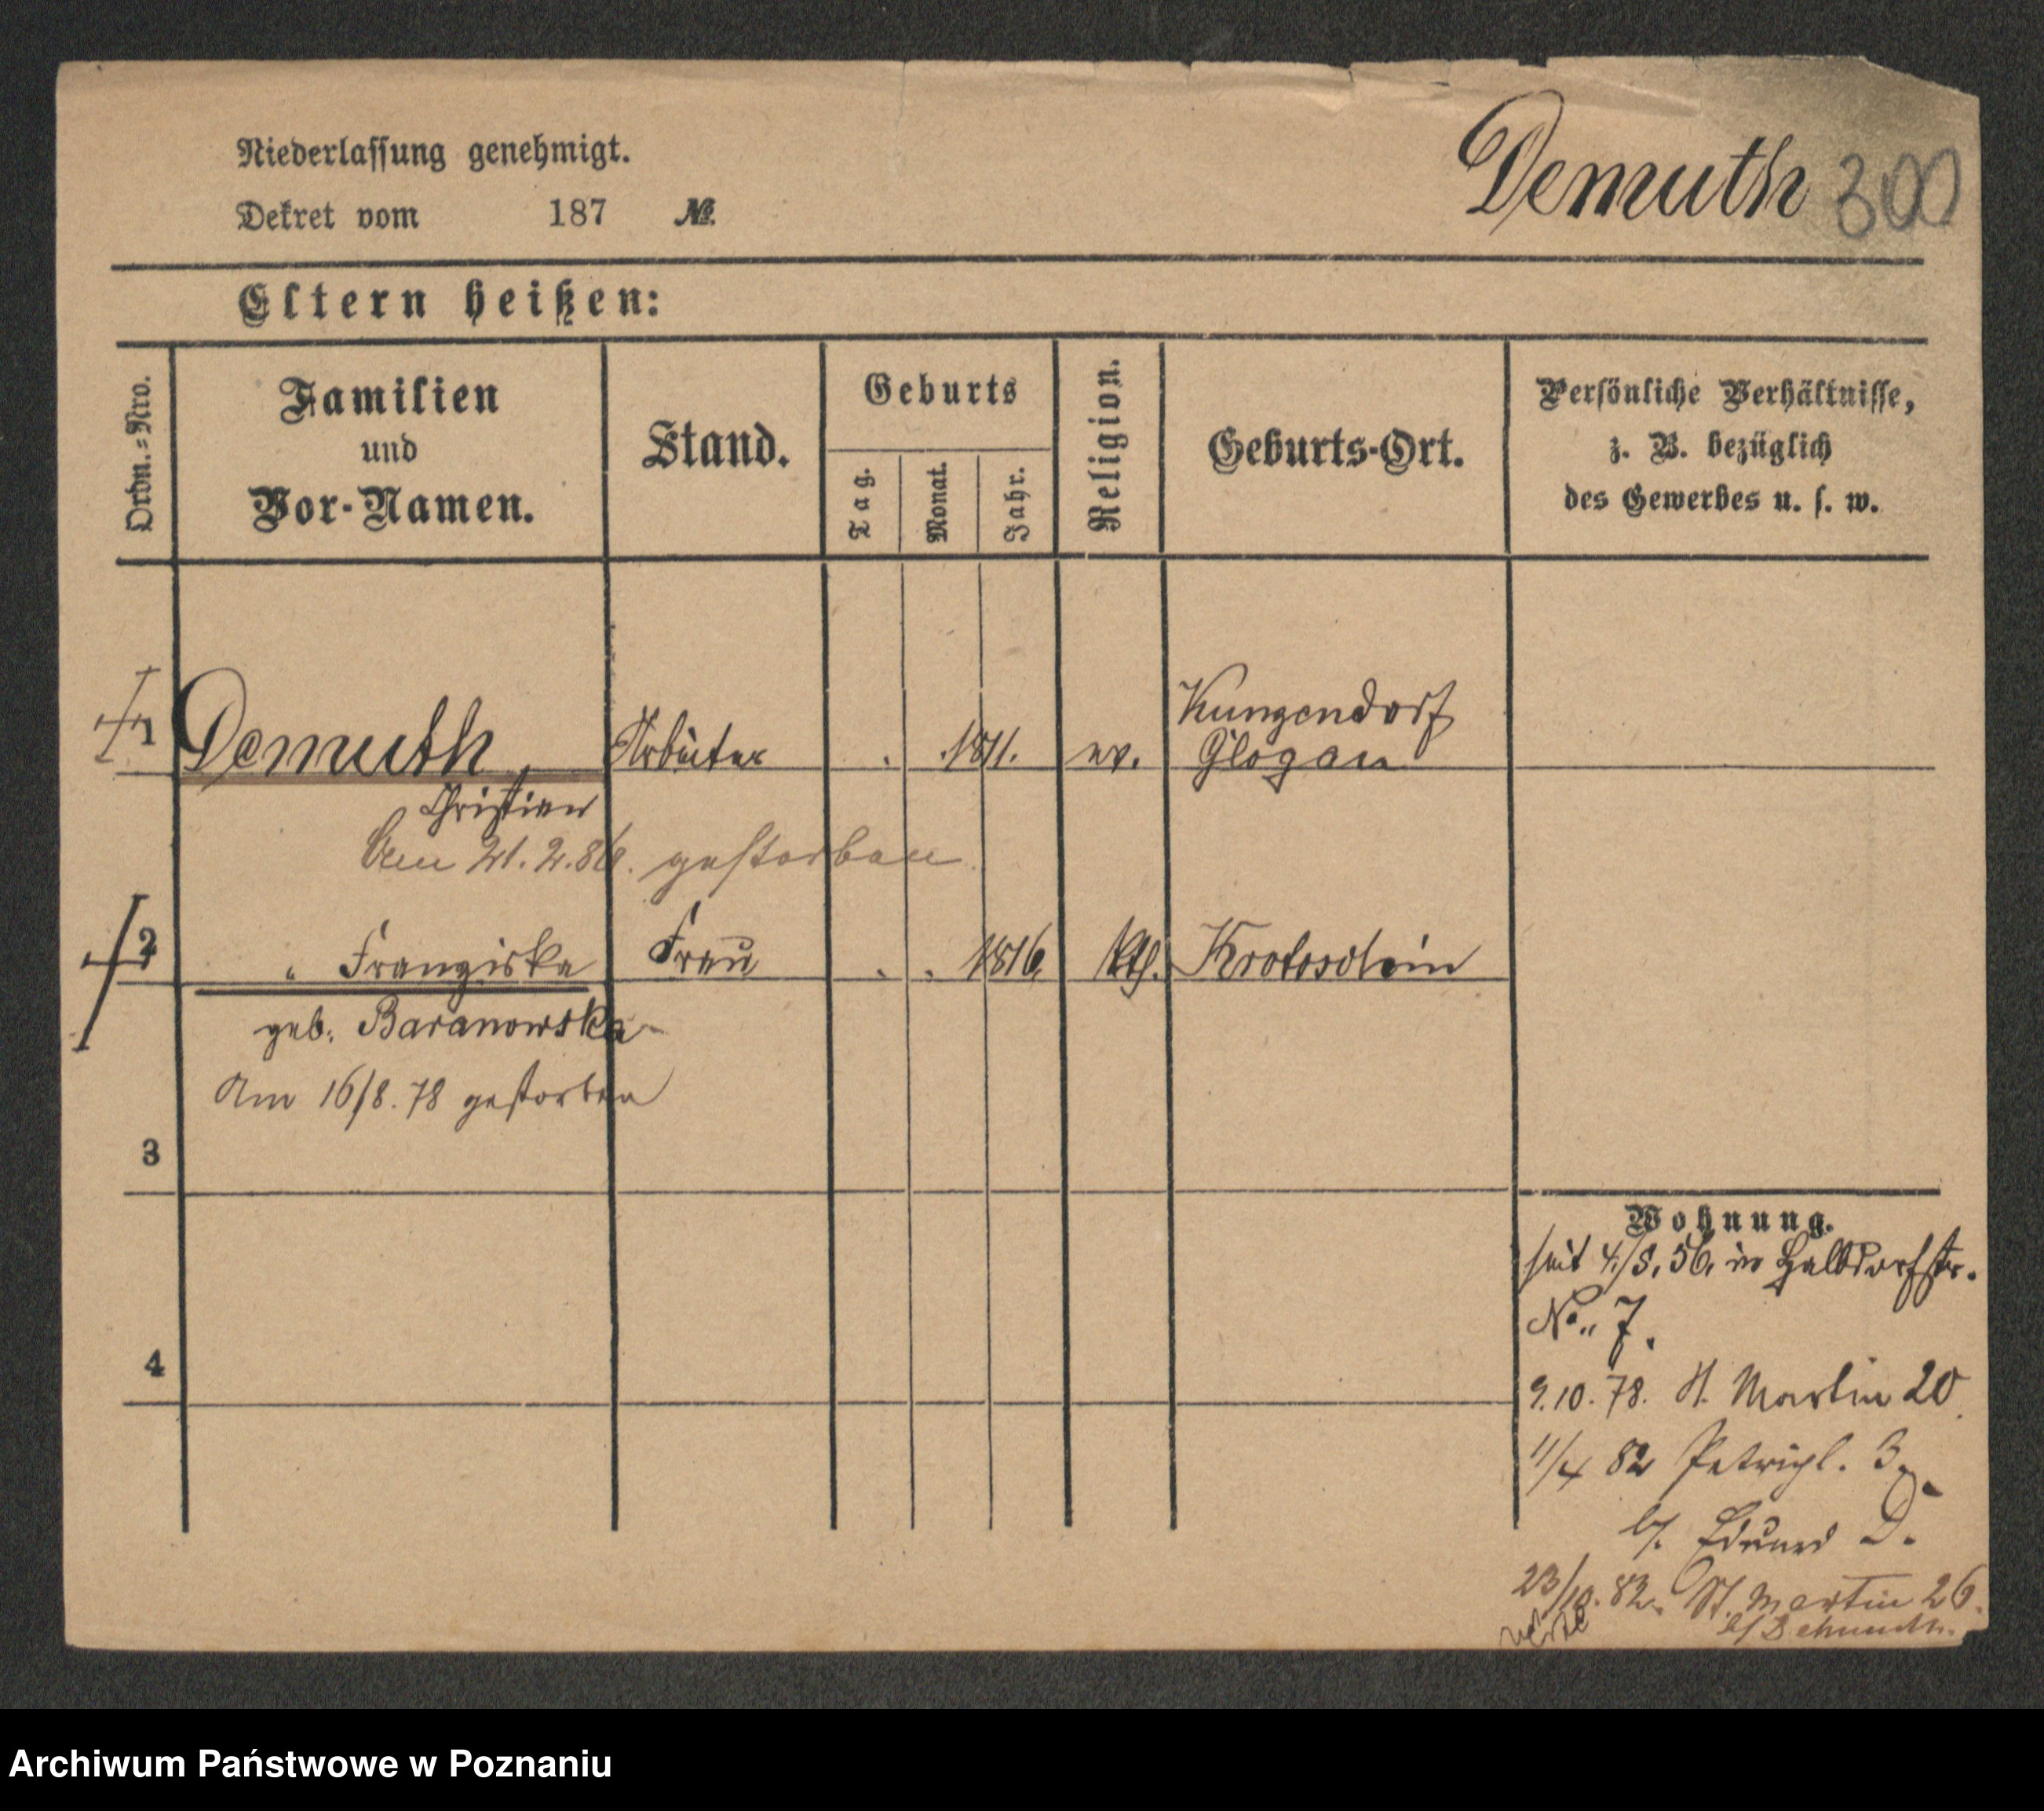 Niederlassung genehmigt.
Dekret vom 187 №.
Demuth 300
Eltern heißen:
Ordn.=Nro.
Familien
und
Vor-Namen.
Stand.
Geburts
Tag.
Monat.
Jahr.
Religion.
Geburts-Ort.
Persönliche Verhältnisse,
z. B. bezüglich
des Gewerbes u. s. w.
Kungendorf
1 Demuth, Arbeiter . . 1811. ev. Glogau
Christian
Am 21.2.86. gestorben
2 " Franziska Frau . . 1816. kth. Krotoschin
geb. Baranowska
Am 16/8. 78 gestorben
3
4
Wohnung.
seit 4./5. 56. in Halbdorfstr.
No. 7.
9.10.78. St. Martin 20.
11/4 82 Petripl. 3.
b/. Eduard D.
23/10.82. St. Martin 26.
b/
Archiwum Państwowe w Poznaniu